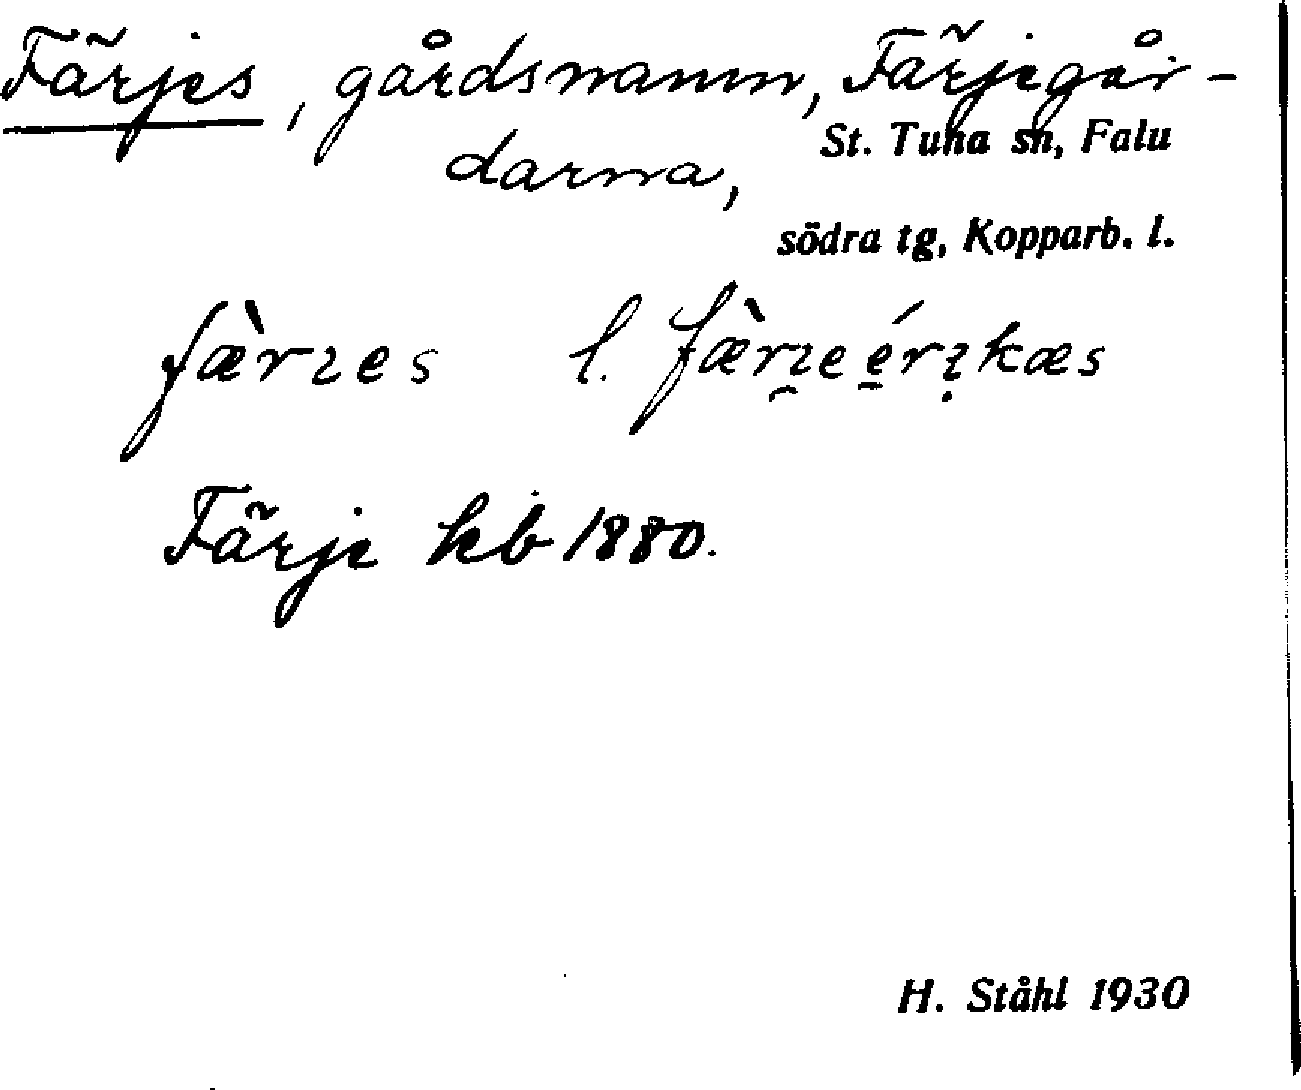 Färjes, gårdsnamn, Färjegår-
darna, St. Tuna sn, Falu
södra tg, Kopparb. l.
fæ̀rɩes l. fæ̀rɩ̯eé̠rɩ̣kæs
Färje kb 1880.
H. Ståhl 1930